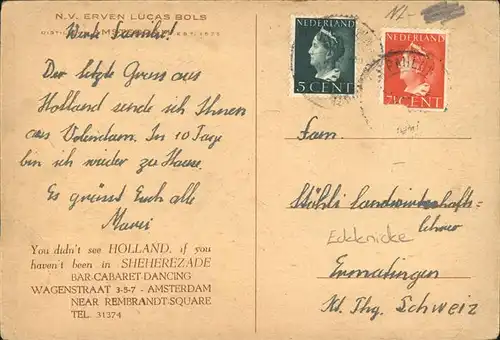 N.V. ERVEN LUCAS BOLS
AMSTERDAM EST. 1575
Werte Familie!
Der letzte Gruss aus
Holland sende ich Ihnen
aus Volendam. In 10 Tage
bin ich wieder zu Hause.
Es grüsst Euch alle
You didn't see HOLLAND, if you
haven't been in SHEHEREZADE
BAR-CABARET-DANCING
WAGENSTRAAT 3-5-7 - AMSTERDAM
NEAR REMBRANDT-SQUARE
TEL. 31374
NEDERLAND
5 CENT
NEDERLAND
7½ CENT
Fam.
Stähli landwirtschafts-
lehrer
Eckknicke
Ermatingen
Kt. Thg. Schweiz